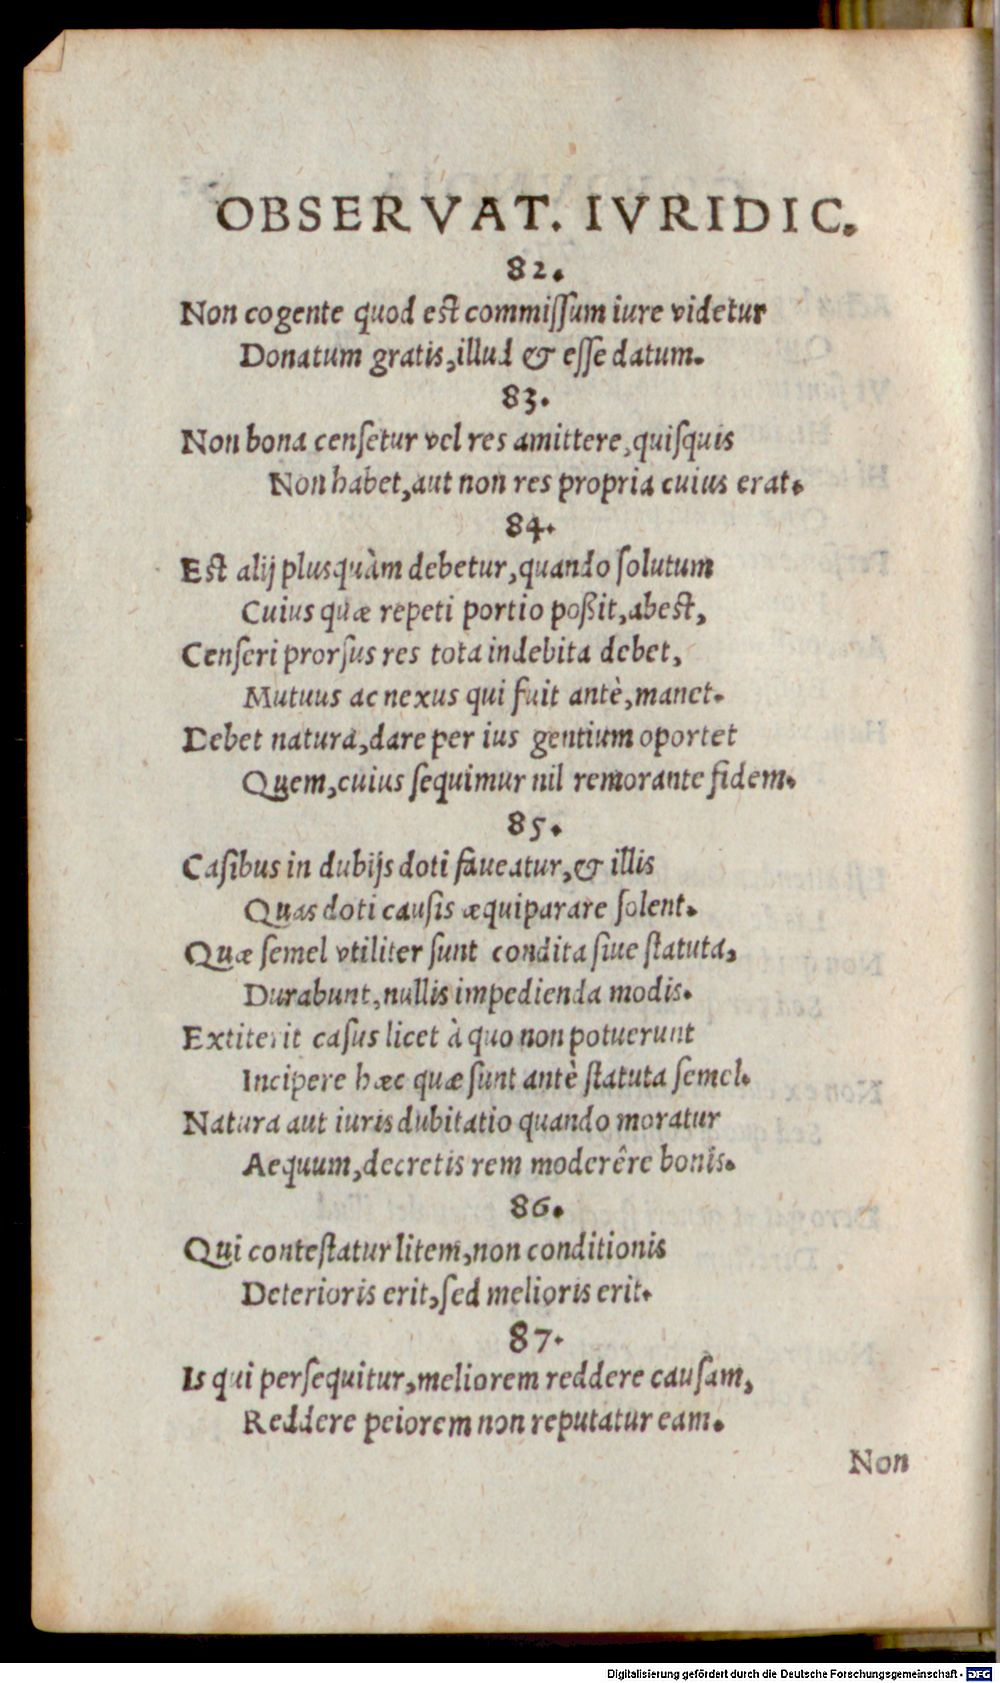 OBSERVAT. IVRIDIC.
82.
Non cogente quod est commissum iure videtur
Donatum gratis, illud & esse datum.
83.
Non bona censetur vel res amittere, quisquis
Non habet, aut non res propria cuius erat.
84.
Est alij plusquàm debetur, quando solutum
Cuius quæ repeti portio poßit, abest,
Censeri prorsus res tota indebita debet,
Mutuus ac nexus qui fuit antè, manet.
Debet natura, dare per ius gentium oportet
Quem, cuius sequimur nil remorante fidem.
85.
Casibus in dubijs doti faueatur, & illis
Quas doti causis æquiparare solent.
Quæ semel vtiliter sunt condita siue statuta,
Durabunt, nullis impedienda modis.
Extiterit casus licet à quo non potuerunt
Incipere hæc quæ sunt antè statuta semel.
Natura aut iuris dubitatio quando moratur
Aequum, decretis rem moderêre bonis.
86.
Qui contestatur litem, non conditionis
Deterioris erit, sed melioris erit.
87.
Is qui persequitur, meliorem reddere causam,
Reddere peiorem non reputatur eam.
Non
Digitalisierung gefördert durch die Deutsche Forschungsgemeinschaft - DFG